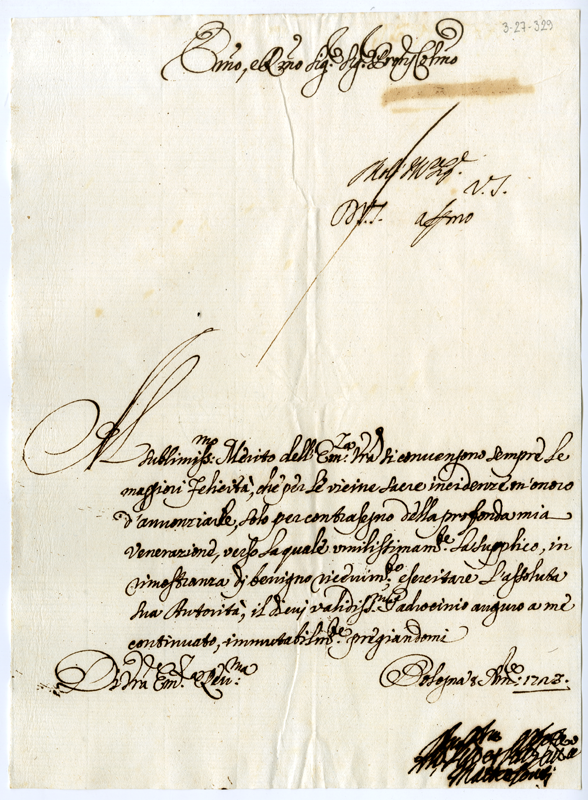 3-27-329
Emo, e Rmo Sig.r Sig.r Pron Colmo
V.S.
affmo
Al
sublimiss:mo Merito dell' Em:za Vra si convengono sempre le
maggiori Felicità, che per le vicine Sacre incidenze m'onoro
d'annonziarle, solo per contrasegno della profonda mia
venerazione, verso la quale umilissimam:te la supplico, in
rimostranza di benigno ricevim:to esercitare l'assoluta
sua Autorità, il di cui validiss:mo Padrocinio auguro a me
continuato, immutabilm:te pregiandomi
Di Vra Em:za Rev:ma
Bologna